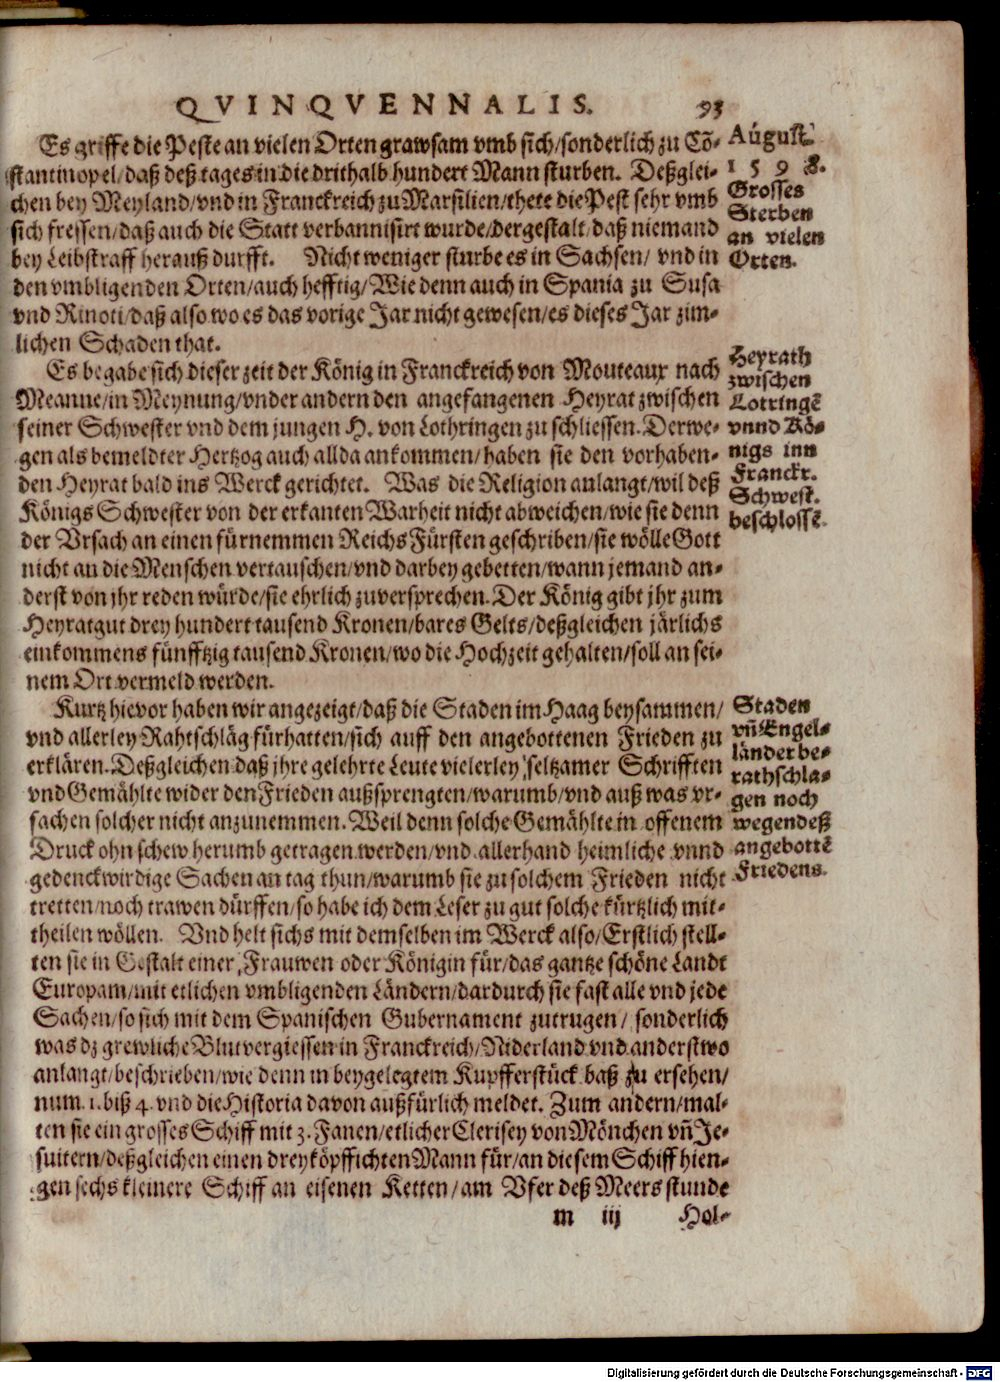 QVINQVENNALIS. 93
Es griffe die Peste an vielen Orten grawsam vmb sich/sonderlich zu Cõ-
stantinopel/daß deß tages in die drithalb hundert Mann sturben. Deßglei-
chen bey Meyland/vnd in Franckreich zu Marsilien/thete die Pest sehr vmb
sich fressen/daß auch die Statt verbannisirt wurde/dergestalt/daß niemand
bey Leibstraff herauß durfft. Nicht weniger sturbe es in Sachsen/ vnd in
den vmbligenden Orten/auch hefftig/Wie denn auch in Spania zu Susa
vnd Rinoti/daß also wo es das vorige Jar nicht gewesen/es dieses Jar zim-
lichen Schaden that.
August.
1598.
Grosses
Sterben
an vielen
Orten.
Es begabe sich dieser zeit der König in Franckreich von Mouteaux nach
Meanne/in Meynung/vnder andern den angefangenen Heyrat zwischen
seiner Schwester vnd dem jungen H. von Lothringen zu schliessen. Derwe-
gen als bemeldter Hertzog auch allda ankommen/haben sie den vorhaben-
den Heyrat bald ins Werck gerichtet. Was die Religion anlangt/wil deß
Königs Schwester von der erkanten Warheit nicht abweichen/wie sie denn
der Vrsach an einen fürnemmen Reichs Fürsten geschriben/sie wölle Gott
nicht an die Menschen vertauschen/vnd darbey gebetten/wann jemand an-
derst von jhr reden würde/sie ehrlich zuversprechen. Der König gibt jhr zum
Heyratgut drey hundert tausend Kronen/bares Gelts/deßgleichen järlichs
einkommens fünfftzig tausend Kronen/wo die Hochzeit gehalten/soll an sei-
nem Ort vermeld werden.
Heyrath
zwischen
Lotringẽ
vnnd Kö-
nigs inn
Franckr.
Schwest.
beschlossẽ.
Kurtz hievor haben wir angezeigt/daß die Staden im Haag beysammen/
vnd allerley Rahtschläg fürhatten/sich auff den angebottenen Frieden zu
erklären. Deßgleichen daß jhre gelehrte Leute vielerley seltzamer Schrifften
vnd Gemählte wider den Frieden außsprengten/warumb/vnd auß was vr-
sachen solcher nicht anzunemmen. Weil denn solche Gemählte in offenem
Druck ohn schew herumb getragen werden/vnd allerhand heimliche vnnd
gedenckwirdige Sachen an tag thun/warumb sie zu solchem Frieden nicht
tretten/noch trawen dürffen/so habe ich dem Leser zu gut solche kürtzlich mit-
theilen wöllen. Vnd helt sichs mit demselben im Werck also/Erstlich stell-
ten sie in Gestalt einer Frauwen oder Königin für/das gantze schöne Landt
Europam/mit etlichen vmbligenden Ländern/dardurch sie fast alle vnd jede
Sachen/so sich mit dem Spanischen Gubernament zutrugen/ sonderlich
was dz grewliche Blutvergiessen in Franckreich/Niderland vnd anderstwo
anlangt/beschrieben/wie denn in beygelegtem Kupfferstück baß zu ersehen/
num. 1. biß 4. vnd die Historia davon außfürlich meldet. Zum andern/mal-
ten sie ein grosses Schiff mit 3. Fanen/etlicher Clerisey von Mönchen vñ Je-
suitern/deßgleichen einen dreyköpffichten Mann für/an diesem Schiff hien-
gen sechs kleinere Schiff an eisenen Ketten/am Vfer deß Meers stunde
Staden
vñ Engel-
länder be-
rathschla-
gen noch
wegen deß
angebottẽ
Friedens.
m iij Hol-
Digitalisierung gefördert durch die Deutsche Forschungsgemeinschaft - DFG